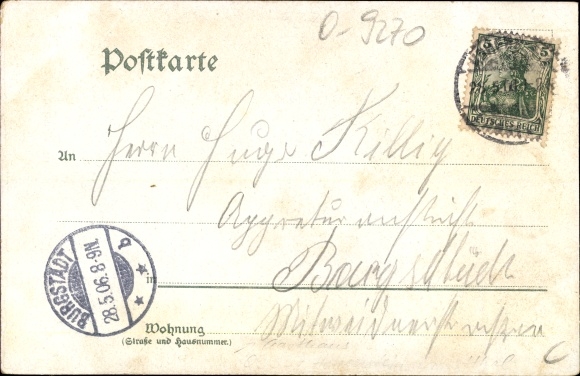 O-9270
Postkarte
5
DEUTSCHES REICH
An Herrn Hugo Killig
Appreturanstalt
in Burgstädt
BURGSTÄDT
28.5.06.8-9N.
b
Wohnung
(Straße und Hausnummer.)
Mitweidnerstrasse